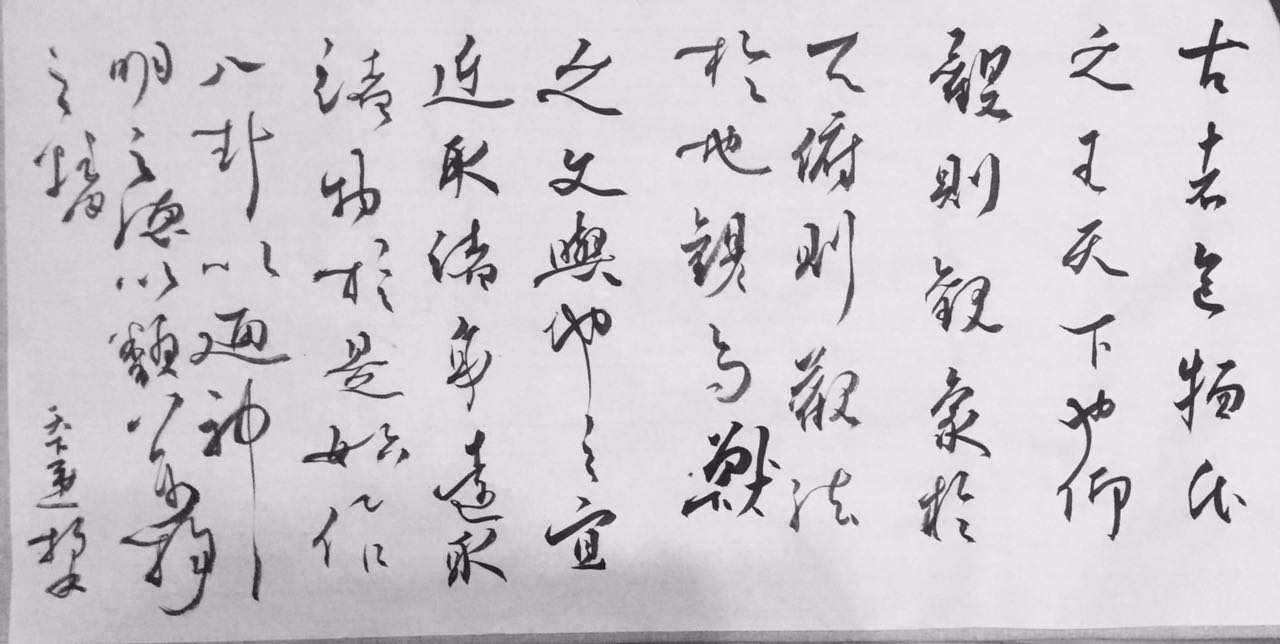 古者包犧氏
之王天下也仰
觀則觀象於
天俯則觀法
於地觀鳥獸
之文與地之宜
近取諸身遠取
諸物於是始作
八卦以通神
明之德以類萬物
之情
天下